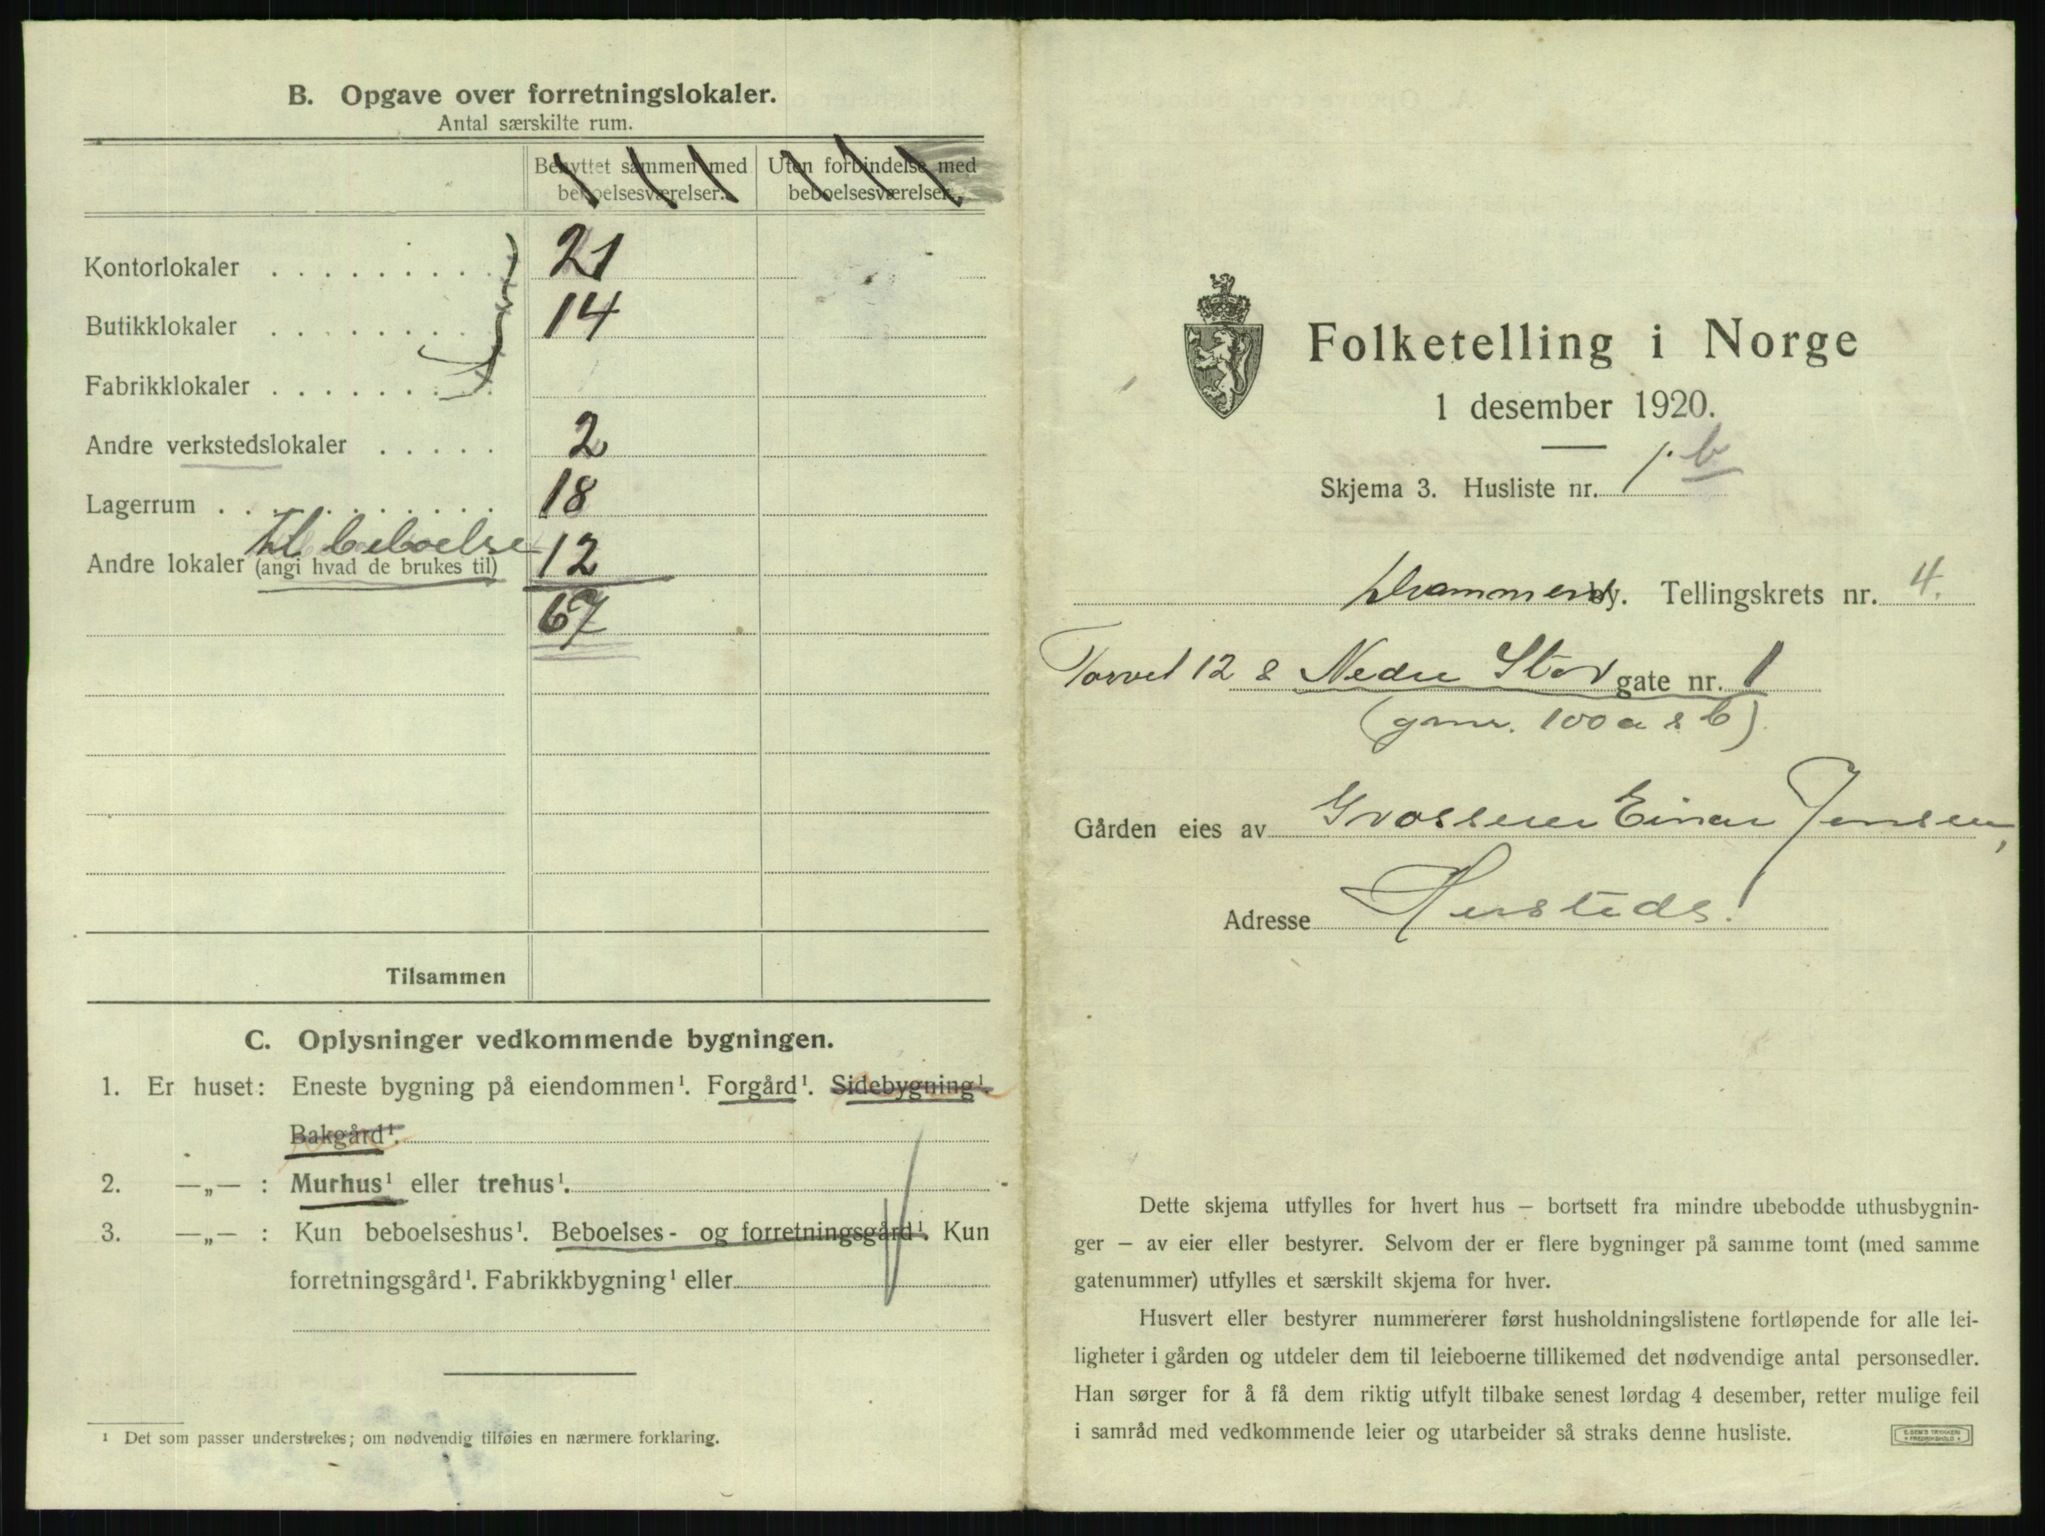 B. Opgave over forretningslokaler.
Antal særskilte rum.
Benyttet sammen med beboelsesværelser. Uten forbindelse med beboelsesværelser.
Kontorlokaler . . . . . . . . . 21
Butikklokaler . . . . . . . . 14
Fabrikklokaler . . . . . . .
Andre verkstedslokaler . . . . . 2
Lagerrum . . . . . . . . . . 18
til beboelse
Andre lokaler (angi hvad de brukes til) 12
67
Tilsammen
C. Oplysninger vedkommende bygningen.
1. Er huset: Eneste bygning på eiendommen¹. Forgård¹. Sidebygning¹.
Bakgård¹.
2. —„— : Murhus¹ eller trehus¹.
3. —„— : Kun beboelseshus¹. Beboelses- og forretningsgård¹. Kun
forretningsgård¹. Fabrikkbygning¹ eller
¹ Det som passer understrekes; om nødvendig tilføies en nærmere forklaring.
Folketelling i Norge
1 desember 1920.
Skjema 3. Husliste nr. 1.b
Drammen by. Tellingskrets nr. 4.
Torvet 12 & Nedre Stor gate nr. 1
(gmr. 100 a & b)
Gården eies av Grosserer Einar Jensen,
Adresse
Dette skjema utfylles for hvert hus — bortsett fra mindre ubebodde uthusbygnin-
ger — av eier eller bestyrer. Selvom der er flere bygninger på samme tomt (med samme
gatenummer) utfylles et særskilt skjema for hver.
Husvert eller bestyrer nummererer først husholdningslistene fortløpende for alle lei-
ligheter i gården og utdeler dem til leieboerne tillikemed det nødvendige antal personsedler.
Han sørger for å få dem riktig utfylt tilbake senest lørdag 4 desember, retter mulige feil
i samråd med vedkommende leier og utarbeider så straks denne husliste.